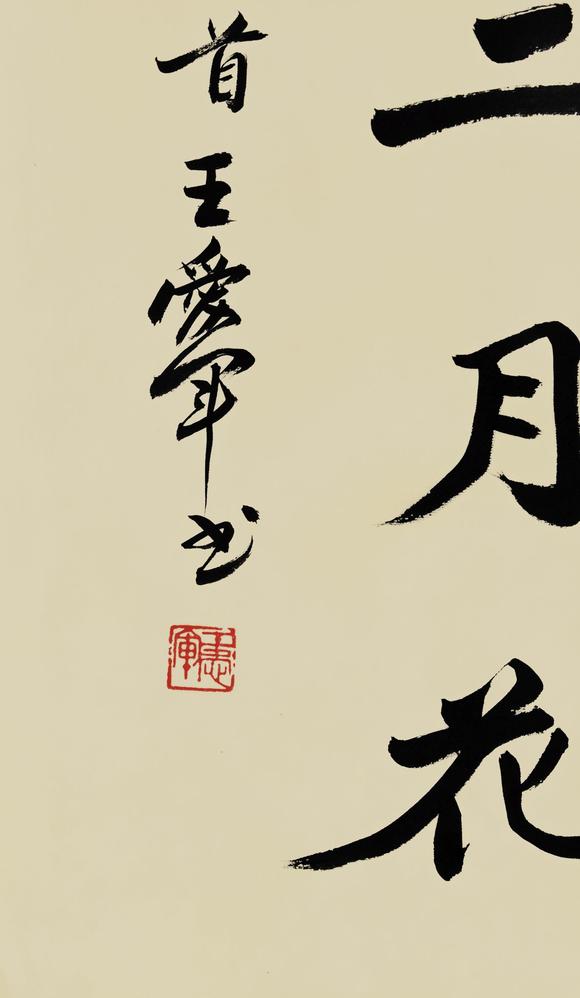 二月花
首王爱军书